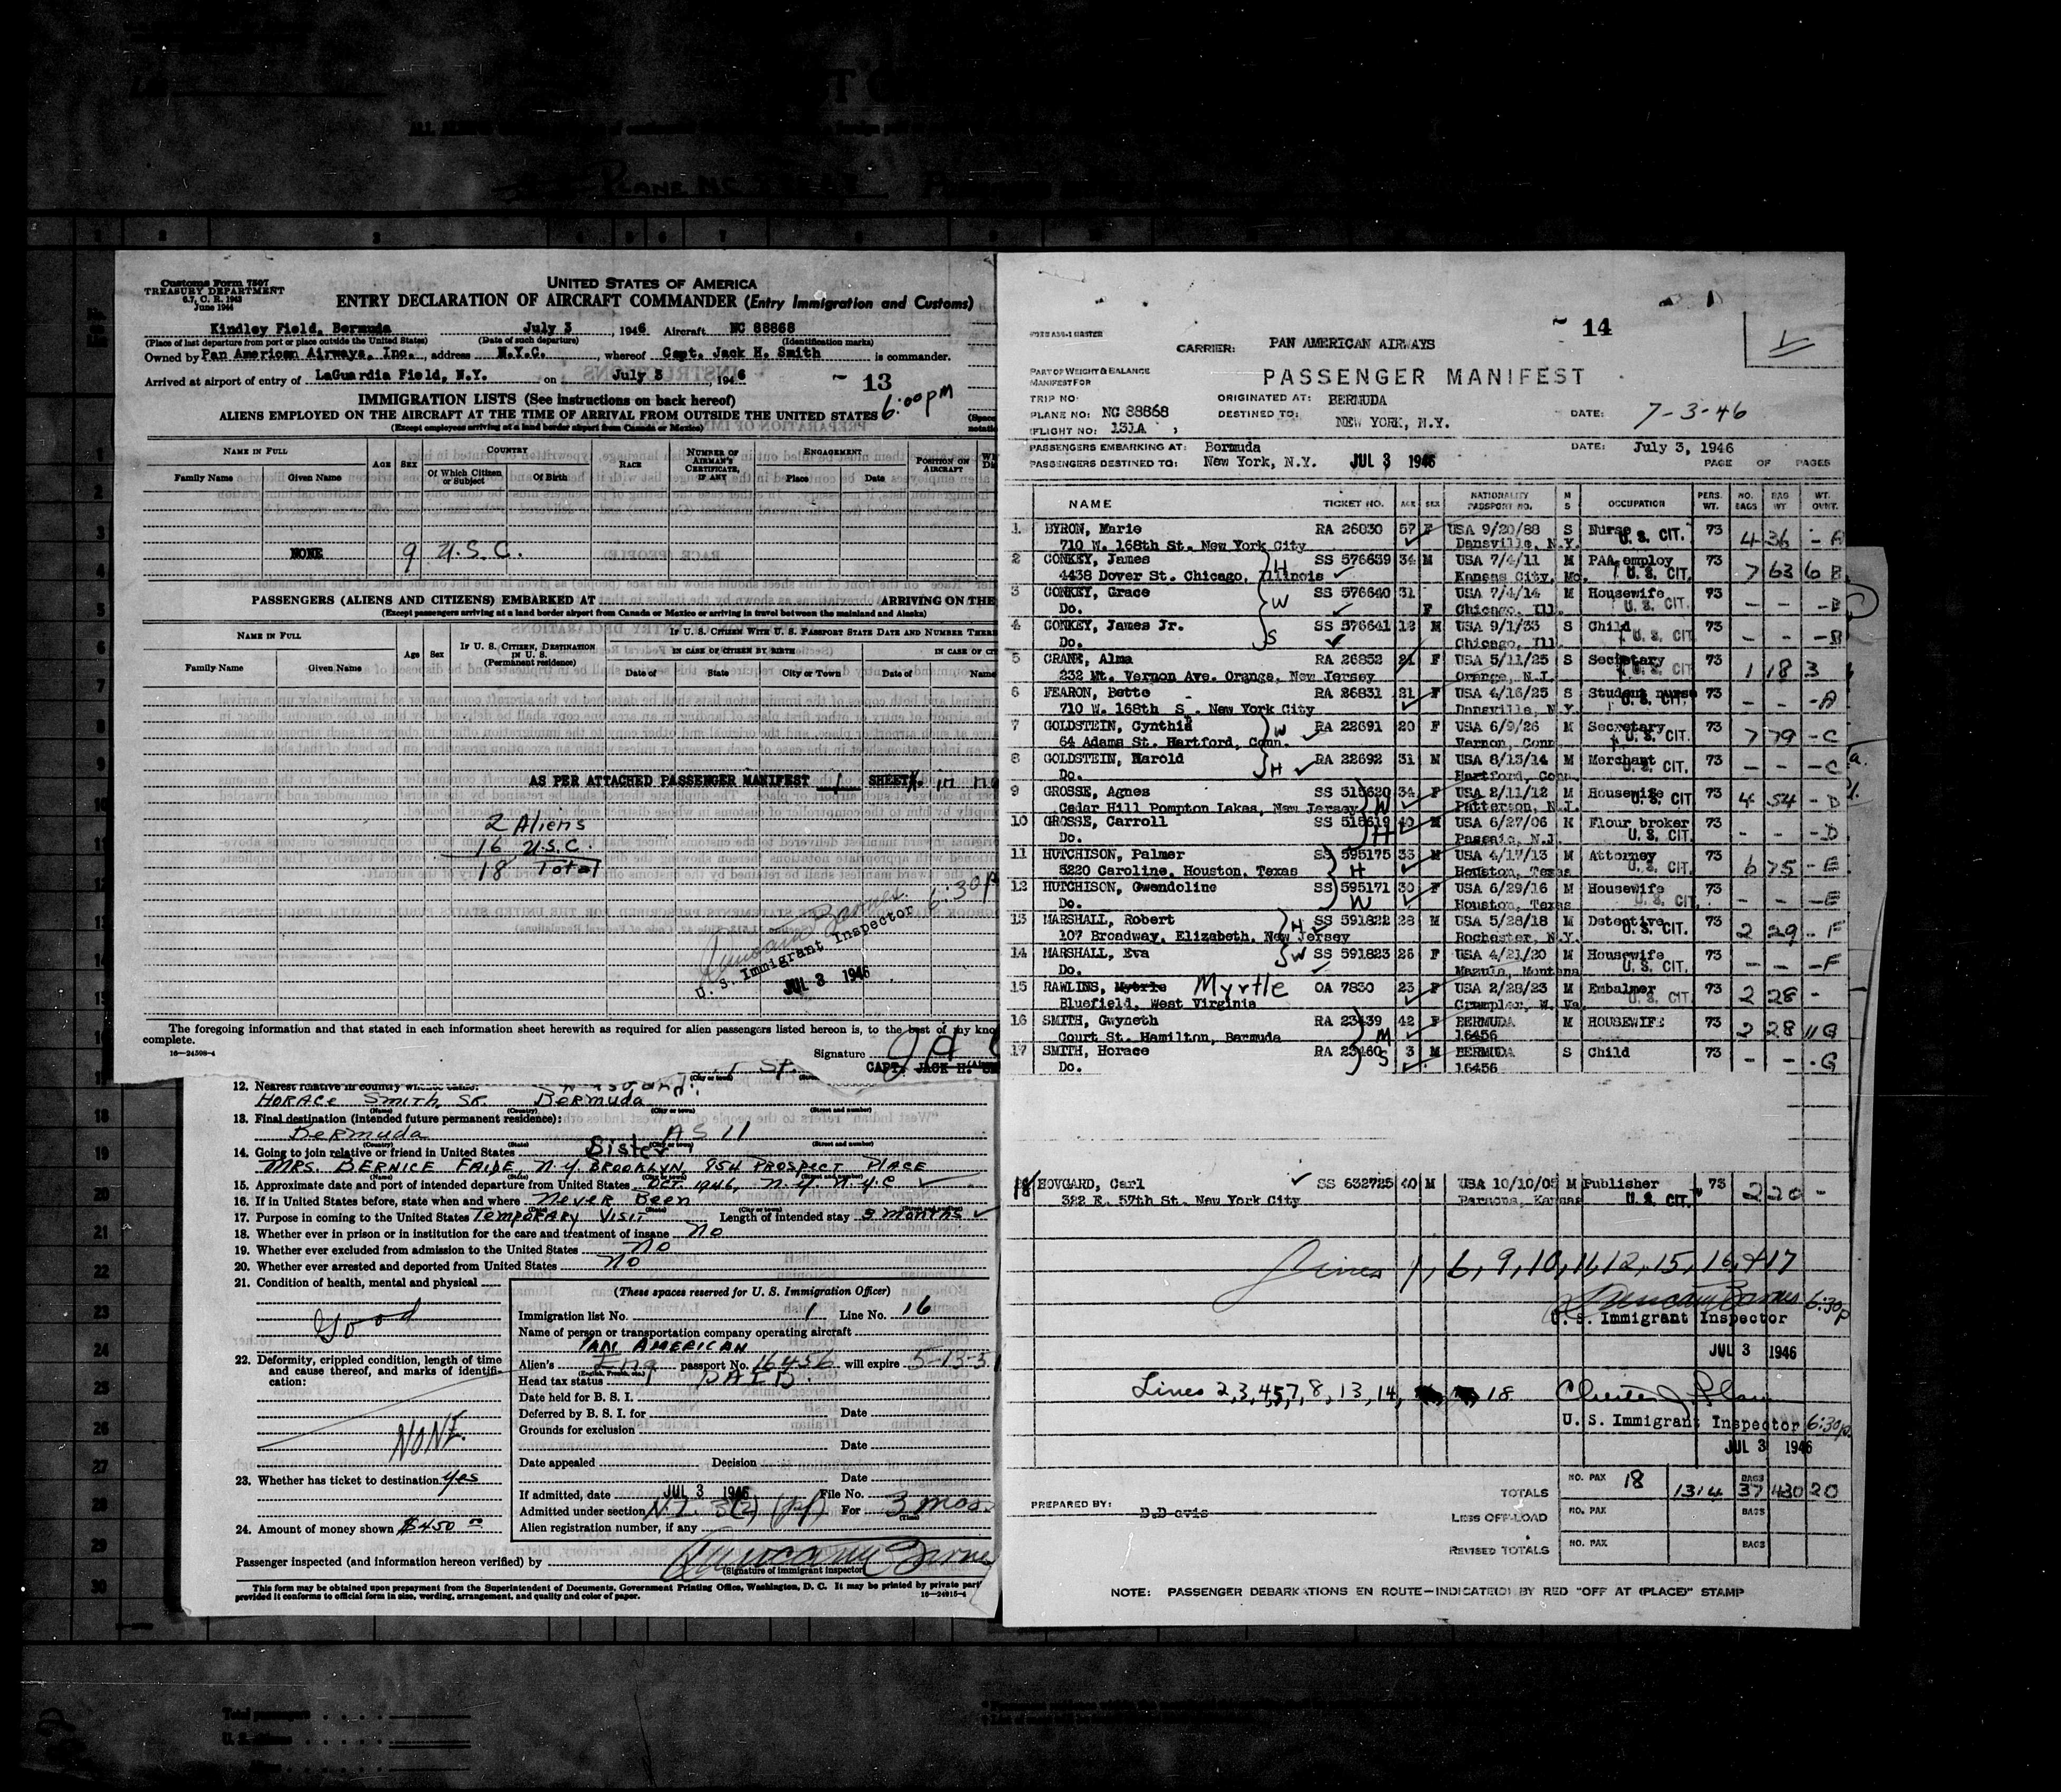 Customs Form 7507
TREASURY DEPARTMENT
6.7, C. R. 1943
June 1944
UNITED STATES OF AMERICA
ENTRY DECLARATION OF AIRCRAFT COMMANDER (Entry Immigration and Customs)
Kindley Field, Bermuda July 3, 1946 Aircraft NC 88868
(Place of last departure from port or place outside the United States) (Date of such departure) (Identification marks)
Owned by Pan American Airways, Inc., address N.Y.C., whereof Capt. Jack H. Smith is commander.
Arrived at airport of entry of LaGuardia Field, N.Y. on July 3, 1946
13
6:00 pm
IMMIGRATION LISTS (See instructions on back hereof)
ALIENS EMPLOYED ON THE AIRCRAFT AT THE TIME OF ARRIVAL FROM OUTSIDE THE UNITED STATES
(Except employees arriving at a land border airport from Canada or Mexico)
NAME IN FULL
Family Name Given Name
AGE SEX
COUNTRY
Of Which Citizen or Subject Of Birth
RACE
NUMBER OF AIRMAN'S CERTIFICATE, IF ANY
ENGAGEMENT
Place Date
POSITION ON AIRCRAFT
NONE 9 U.S.C.
PASSENGERS (ALIENS AND CITIZENS) EMBARKED AT ARRIVING ON THE
(Except passengers arriving at a land border airport from Canada or Mexico or arriving in travel between the mainland and Hawaii and Alaska)
NAME IN FULL
Family Name Given Name
Age Sex
IF U. S. CITIZEN, DESTINATION IN U. S.
(Permanent residence)
IF U. S. CITIZEN WITH U. S. PASSPORT STATE DATE AND NUMBER THERE
IN CASE OF CITIZEN BY BIRTH IN CASE OF CIT
Date of State City or Town Date of Name
AS PER ATTACHED PASSENGER MANIFEST 1 SHEET
2 Aliens
16 U.S.C.
18 Total
6:30 P
U. S. Immigrant Inspector
JUL 3 1946
The foregoing information and that stated in each information sheet herewith as required for alien passengers listed hereon is, to the best of my kno
complete.
16—24598-4
Signature
CAPT. JACK H.
12. Nearest relative in country whence came:
HORACE SMITH, SR. BERMUDA
(Name) (Country) (City or town) (Street and number)
13. Final destination (intended future permanent residence):
Bermuda AS 11
(Country) (State) (City or town) (Street and number)
14. Going to join relative or friend in United States Sister
MRS. BERNICE FAIDE, N.Y. BROOKLYN, 954 PROSPECT PLACE
(Name) (State) (City or town) (Street and number)
15. Approximate date and port of intended departure from United States OCT. 1946, N.Y. N.Y.C
16. If in United States before, state when and where Never Been
17. Purpose in coming to the United States TEMPORARY VISIT Length of intended stay 3 months
18. Whether ever in prison or in institution for the care and treatment of insane NO
19. Whether ever excluded from admission to the United States NO
20. Whether ever arrested and deported from United States NO
21. Condition of health, mental and physical
Good
22. Deformity, crippled condition, length of time and cause thereof, and marks of identification:
NONE.
23. Whether has ticket to destination yes
24. Amount of money shown $450
(These spaces reserved for U. S. Immigration Officer)
Immigration list No. 1 Line No. 16
Name of person or transportation company operating aircraft
PAN AMERICAN
Alien's Eng passport No. 16456 will expire 5-13-5
(English, French, etc.)
Head tax status PAID
Date held for B. S. I.
Deferred by B. S. I. for Date
Grounds for exclusion
Date
Date appealed Decision
Date
If admitted, date JUL 3 1946 File No.
Admitted under section For 3 mos.
Alien registration number, if any
Passenger inspected (and information hereon verified) by
(Signature of immigrant inspector)
This form may be obtained upon prepayment from the Superintendent of Documents, Government Printing Office, Washington, D. C. It may be printed by private part
provided it conforms to official form in size, wording, arrangement, and quality and color of paper. 16—24915-4
14
CARRIER: PAN AMERICAN AIRWAYS
PASSENGER MANIFEST
PART OF WEIGHT & BALANCE
MANIFEST FOR
TRIP NO:
PLANE NO: NC 88868
(FLIGHT NO: 131A )
ORIGINATED AT: BERMUDA
DESTINED TO: NEW YORK, N.Y.
DATE: 7-3-46
PASSENGERS EMBARKING AT: Bermuda DATE: July 3, 1946
PASSENGERS DESTINED TO: New York, N.Y. JUL 3 1946 PAGE OF PAGES
NAME TICKET NO. AGE SEX NATIONALITY PASSPORT NO. M S OCCUPATION PERS. WT. NO. BAGS BAG WT WT. OVNT.
1 BYRON, Marie RA 26830 57 F USA 9/20/88 S Nurse U. S. CIT. 73 4 36 - A
710 W. 168th St. New York City Dansville, N.Y.
2 CONKEY, James H SS 576639 34 M USA 7/4/11 M PAA employ U. S. CIT. 73 7 63 6 B
4438 Dover St. Chicago, Illinois Kansas City, Mo.
3 CONKEY, Grace W SS 576640 31 F USA 7/4/14 M Housewife U. S. CIT. 73 - - - B
Do. Chicago, Ill.
4 CONKEY, James Jr. S SS 576641 12 M USA 9/1/33 S Child U. S. CIT. 73 - - - B
Do. Chicago, Ill.
5 CRANE, Alma RA 26852 21 F USA 5/11/25 S Secretary U. S. CIT. 73 1 18 3
232 Mt. Vernon Ave. Orange, New Jersey Orange, N.J.
6 FEARON, Bette RA 26831 21 F USA 4/16/25 S Student nurse U. S. CIT. 73 - - - A
710 W. 168th S . New York City Dansville, N.Y.
7 GOLDSTEIN, Cynthia W RA 22691 20 F USA 6/9/26 M Secretary U. S. CIT. 73 7 79 - C
64 Adams St. Hartford, Conn. Vernon, Conn
8 GOLDSTEIN, Harold H RA 22692 31 M USA 8/13/14 M Merchant U. S. CIT. 73 - - - C
Do. Hartford, Conn.
9 GROSSE, Agnes W SS 515620 34 F USA 2/11/12 M Housewife U. S. CIT. 73 4 54 - D
Cedar Hill Pompton Lakes, New Jersey Patterson, N.J.
10 GROSSE, Carroll H SS 515619 40 M USA 6/27/06 M Flour broker U. S. CIT. 73 - - - D
Do. Passaic, N.J.
11 HUTCHISON, Palmer H SS 595175 33 M USA 4/17/13 M Attorney U. S. CIT. 73 6 75 - E
5220 Caroline, Houston, Texas Houston, Texas
12 HUTCHISON, Gwendoline W SS 595171 30 F USA 6/29/16 M Housewife U. S. CIT. 73 - - - E
Do. Houston, Texas
13 MARSHALL, Robert H SS 591822 28 M USA 5/28/18 M Detective U. S. CIT. 73 2 29 - F
107 Broadway, Elizabeth, New Jersey Rochester, N.Y.
14 MARSHALL, Eva W SS 591823 26 F USA 4/21/20 M Housewife U. S. CIT. 73 - - - F
Do. Mazula, Montana
15 RAWLINS, Myrtle OA 7830 23 F USA 2/28/23 M Embalmer U. S. CIT. 73 2 28 -
Bluefield, West Virginia Crumpler, W. Va.
16 SMITH, Gwyneth M RA 23439 42 F BERMUDA M HOUSEWIFE 73 2 28 11 G
Court St. Hamilton, Bermuda 16456
17 SMITH, Horace S RA 23460 3 M BERMUDA S Child 73 - - - G
Do. 16456
18 HOVGARD, Carl SS 632725 40 M USA 10/10/05 M Publisher U. S. CIT. 73 2 20 -
322 E. 57th St. New York City Parsons, Kansas
Lines 1, 6, 9, 10, 11, 12, 15, 16, & 17
6:30 p
U. S. Immigrant Inspector
JUL 3 1946
Lines 2,3,4,5,7, 8, 13, 14, 18
U. S. Immigrant Inspector 6:30 p.
JUL 3 1946
PREPARED BY: D.Davis
TOTALS NO. PAX 18 1314 BAGS 37 430 20
LESS OFF-LOAD NO. PAX BAGS
REVISED TOTALS NO. PAX BAGS
NOTE: PASSENGER DEBARKATIONS EN ROUTE—INDICATED BY RED "OFF AT (PLACE)" STAMP